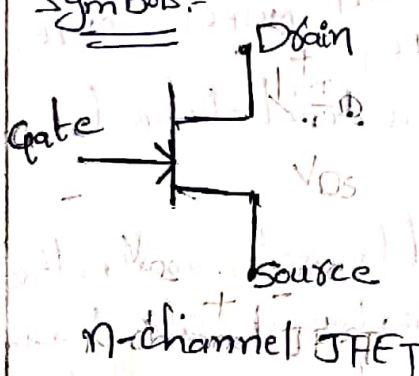 Symbols:-
Drain
Gate
VDS
Source
n-channel JFET